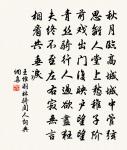 秋月臨高城城中管弦
思離人堂上愁稚子階
前戲出門復映戶望望
青絲騎行人過欲盡狂
夫終不至左右寂無言
相看共垂淚
王維羽林騎閨人